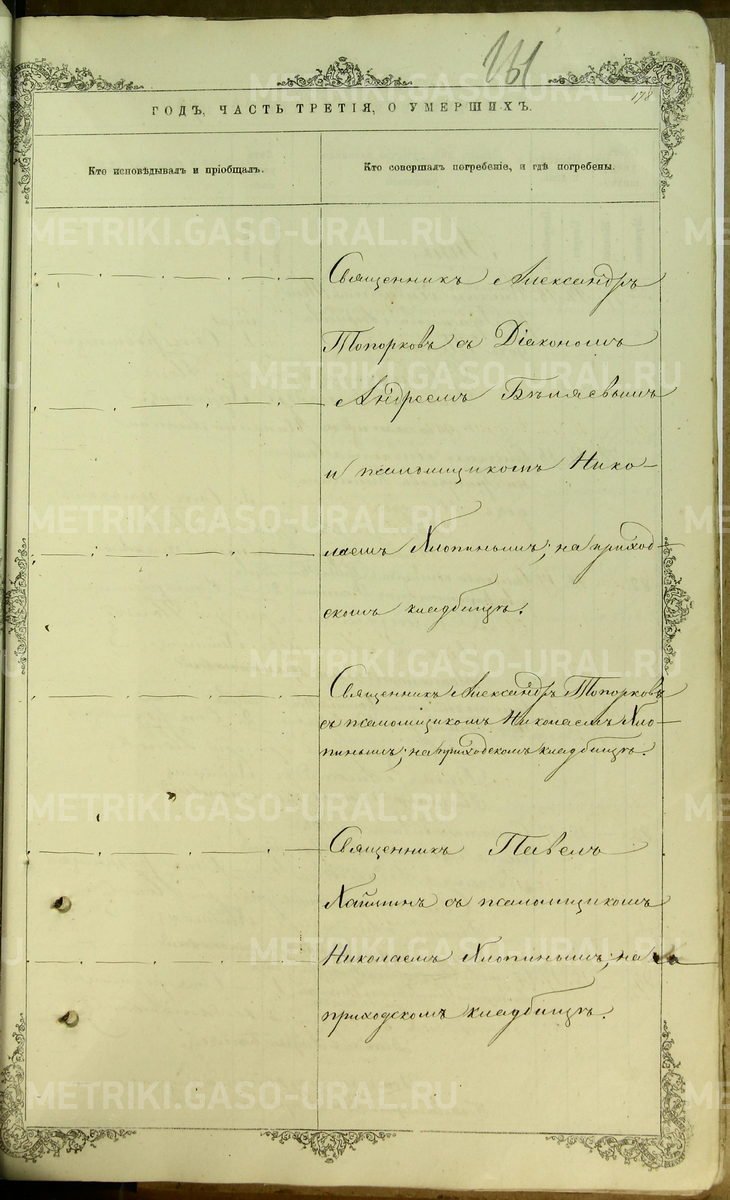 161
178
ГОДЪ, ЧАСТЬ ТРЕТІЯ, О УМЕРШИХЪ.
Кто исповѣдывалъ и пріобщалъ.
Кто совершалъ погребеніе, и гдѣ погребены.
Священникъ Александръ
Топорковъ съ Діакономъ
Андреемъ Бѣляевымъ
и псаломщикомъ Нико-
лаемъ Хлопинымъ; на приход-
скомъ кладбищѣ.
Священникъ Александръ Топорковъ
съ псаломщикомъ Николаемъ Хло-
пинымъ; на приходскомъ кладбищѣ.
Священникъ Павелъ
съ псаломщикомъ
Николаемъ Хлопинымъ; на
приходскомъ кладбищѣ.
METRIKI.GASO-URAL.RU